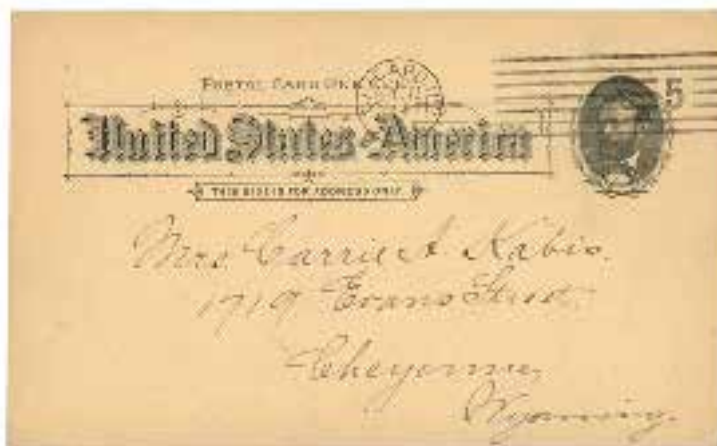 POSTAL CARD ONE CENT
United States of America
THIS SIDE IS FOR ADDRESS ONLY
5
Mrs Carrie A Kabis.
1719 Evans Street.
Cheyenne,
Wyoming.